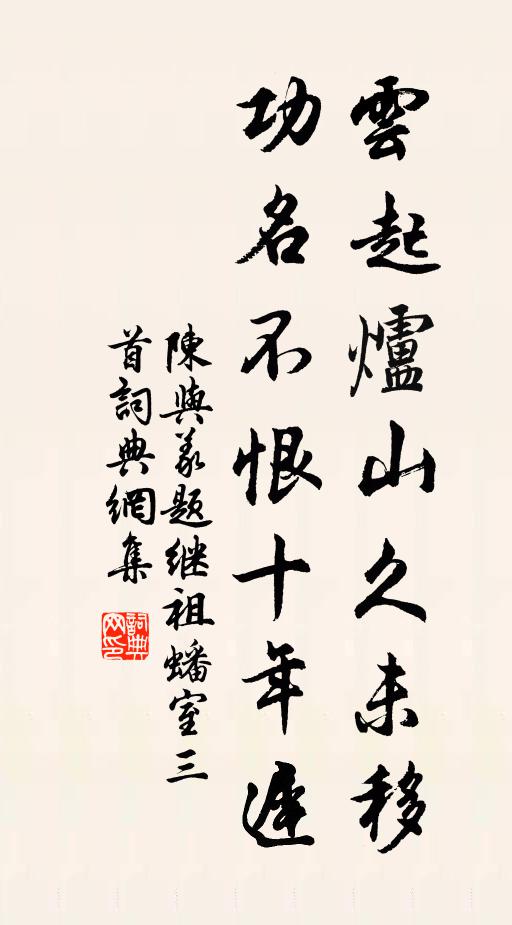 雲起爐山久未移
功名不恨十年遲
陳與義題继祖蟠室三
首詞典網集
詞典
网印